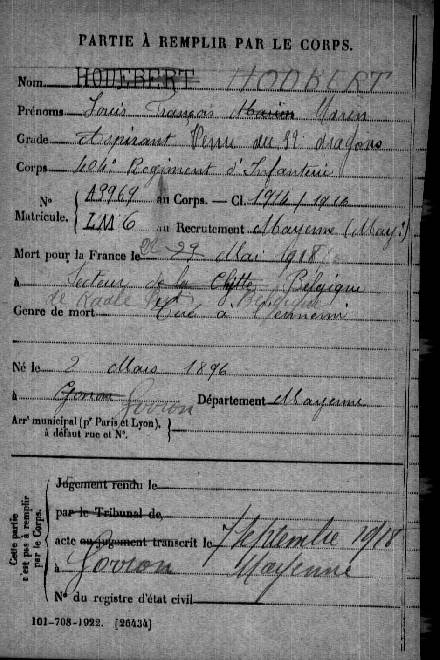 PARTIE À REMPLIR PAR LE CORPS.
Nom HOUEBERT HOUBERT
Prénoms Louis François Marien Marin
Grade Aspirant Venu du 32e dragons
Corps 404e Régiment d'Infanterie
No Matricule. { A9969 au Corps. — Cl. 1914 / 1916
LM 6 au Recrutement Mayenne (May:)
Mort pour la France le 29 Mai 1918
à Secteur de la Clytte Belgique
de Belgique
Genre de mort Tué à l'ennemi
Né le 2 Mars 1896
à Gorron Gorron Département Mayenne
Arrt municipal (pr Paris et Lyon),
à défaut rue et No.
Cette partie n'est pas à remplir par le Corps.
Jugement rendu le
par le Tribunal de
acte ou jugement transcrit le 7 Septembre 1918
à Gorron Mayenne
No du registre d'état civil
101-708-1922. [26434]